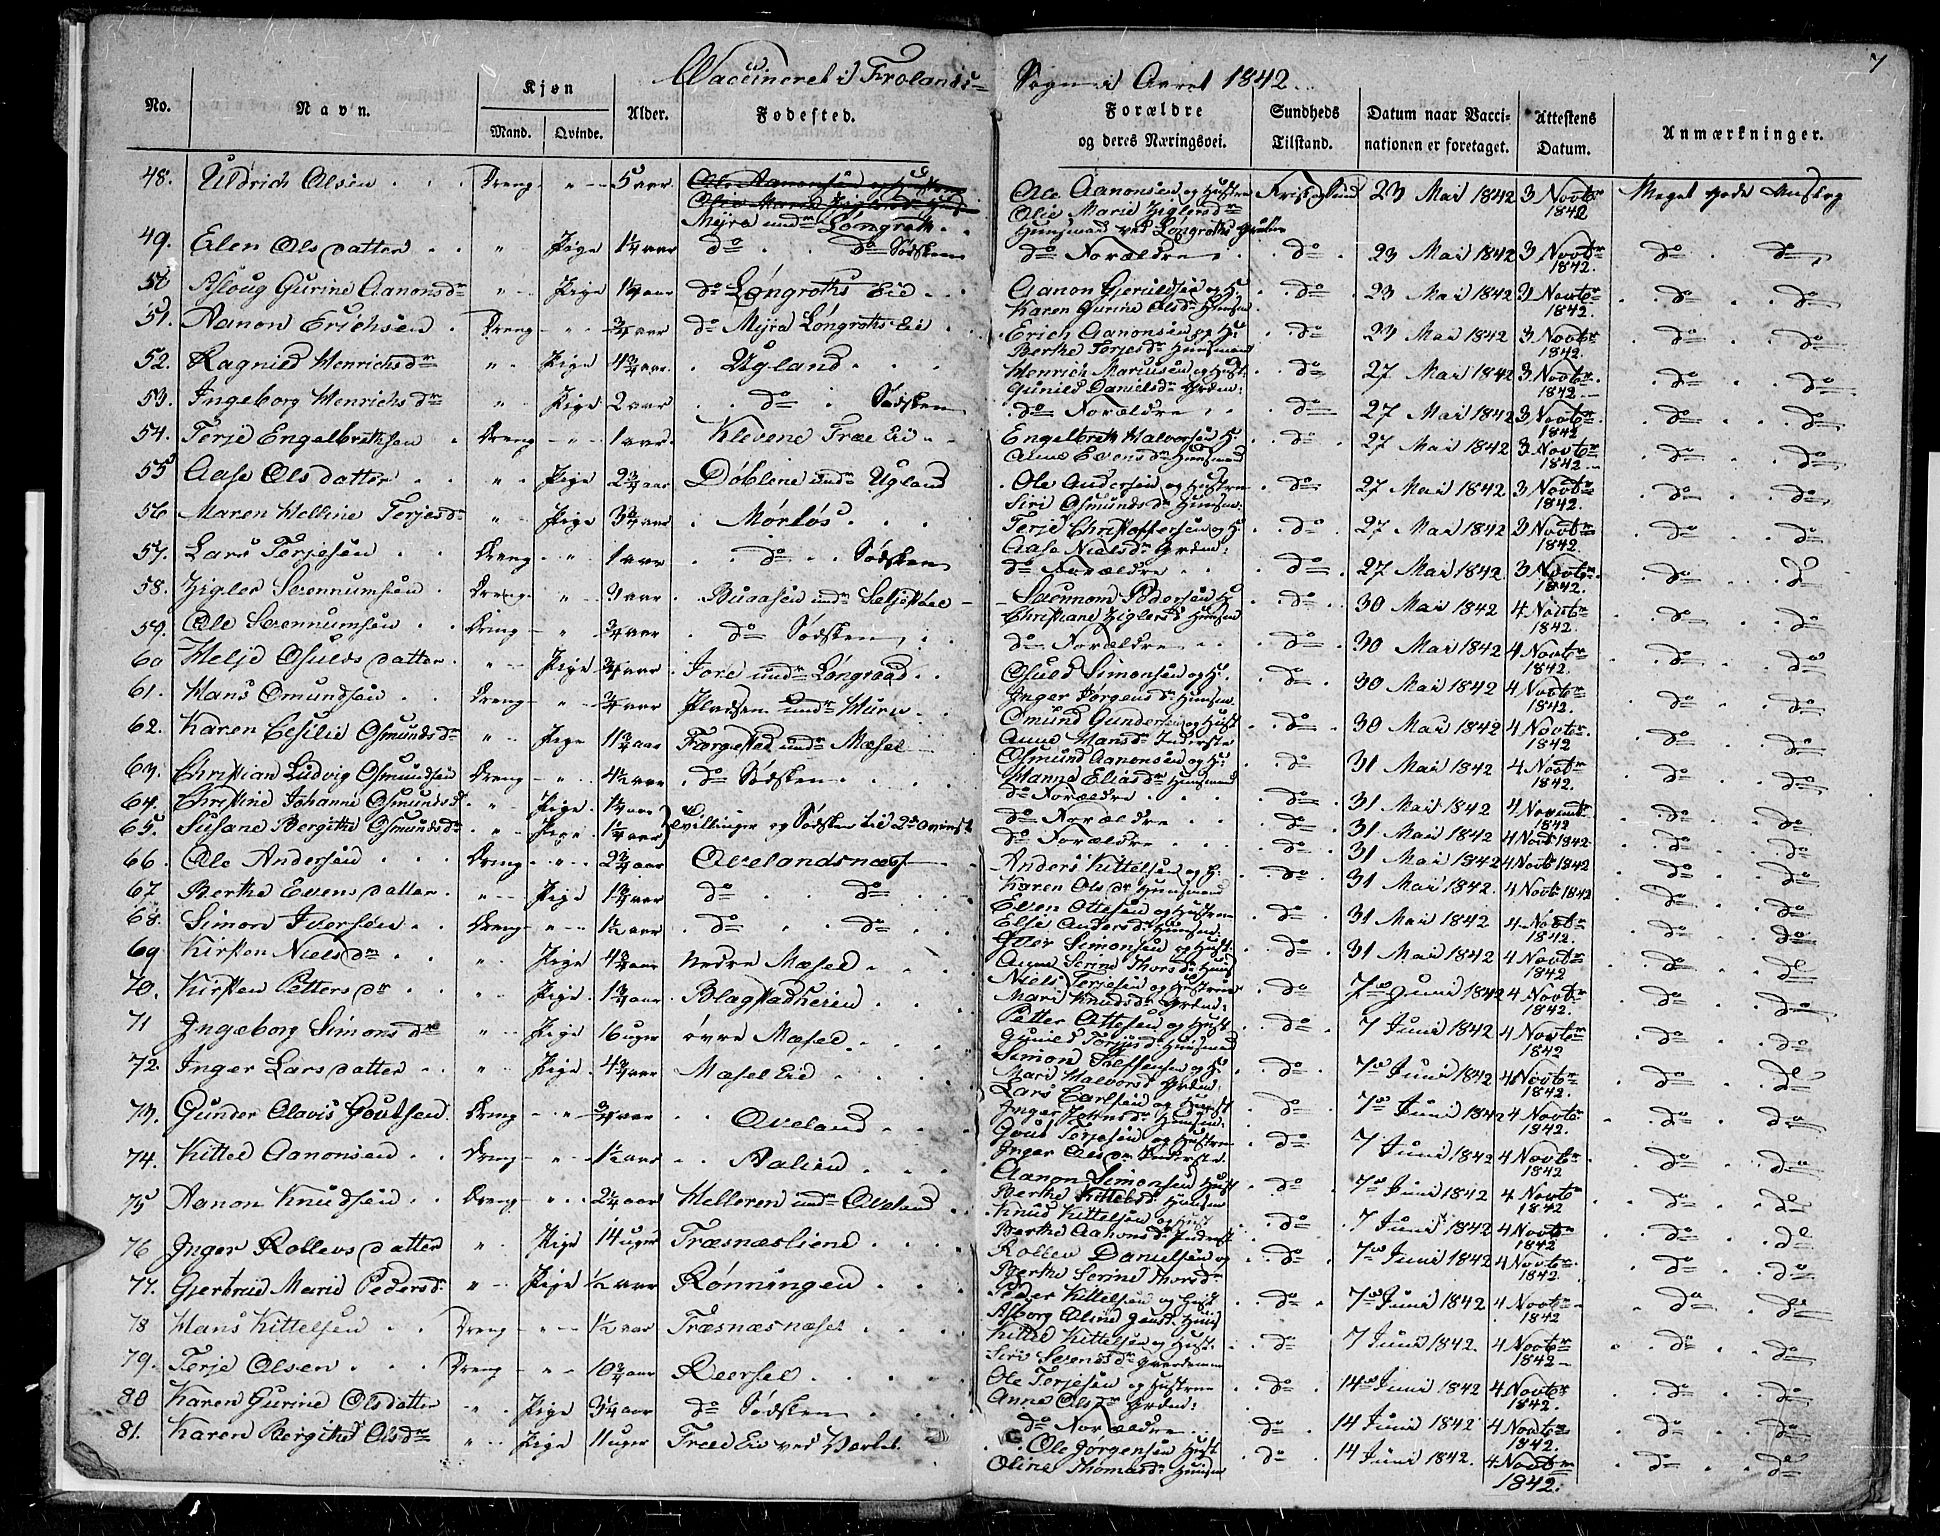 7
Vaccineret i Frolands-
Sogn i Aaret 1842.
No. Navn. Kjøn Alder. Fødested. Forældre og deres Næringsvei. Sundheds Tilstand. Datum naar Vaccinationen er foretaget. Attestens Datum. Anmærkninger.
Mand. Qvinde.
48. Uldrich Olsen Dreng " 5 aar Myra undr Løngroth Ole Aanonsen og Hustru Olie Marie Ziglersdr Huusmand ved Løngroths Gruber Frisk og Sund 23 Mai 1842 3 Novbr 1842 Meget gode Anslag
49. Elen Olsdatter " Pige 1¼ aar do do Sødsken do Forældre do 23 Mai 1842 3 Novbr 1842. do do
50 Asloug Gurine Aanonsdr " Pige do Løngroths Eie Aanon Gjeruldsen og H: Karen Gurine Olsdr Huusm do 23 Mai 1842 3 Novbr 1842. do do
51. Aanon Erichsen Dreng " ¾ aar do Myra Løngroths Eie Erich Aanonsen og H: Berthe Terjesdr Huusmand do 23 Mai 1842 3 Novbr 1842. do do
52. Ragnild Henrichsdr " Pige 4¾ aar Ugland Henrich Mariusen og Hust: Gunild Danielsdr Grdm: do 27 Mai 1842 3 Novbr 1842. do do
53. Ingeborg Henrichsdr " Pige 2 aar do Sødsken do Forældre do 27 Mai 1842 3 Novbr 1842 do do
54. Terje Engelbrethsen Dreng " 1 aar Klevene Træe Eie Engelbreth Halvorsen H: Anne Evensdr Huusmand do 27 Mai 1842 3 Novbr 1842. do do
55 Aase Olsdatter " Pige 2¾ aar Døblene undr Ugland Ole Andersen og Hustru Siri Osmundsdr Huusm: do 27 Mai 1842 3 Novbr 1842. do do
56 Maren Helline Terjesd " Pige 3¾ aar Mørløs Terje Christoffersen og H: Aase Nielsdr Grdm: do 27 Mai 1842 3 Novbr 1842. do do
57. Lars Terjesen Dreng " 1 aar do Sødsken do Forældre do 27 Mai 1842 3 Novbr 1842. do do
58. Zigler Serennumsen Dreng " 3 aar Buaasen undr Seljestøel Serennom Pedersen H: Christiane Ziglersd Huusm do 30 Mai 1842 4 Novbr 1842. do do
59. Ole Serennumsen Dreng " ¾ aar do Sødsken do Forældre do 30 Mai 1842 4 Novbr 1842. do do
60 Helje Osuldsdatter " Pige ¾ aar Jore undr Løngraad Osuld Simonsen og H: Inger Jørgensdr Huusm do 30 Mai 1842 4 Novbr 1842. do do
61. Hans Omundsen Dreng " ¾ aar Pladsen undr Huru Omund Gundersen og Hust Anne Hansdr Inderste do 30 Mai 1842 4 Novbr 1842 do do
62. Karen Cesilie Osmundsdr " Pige 11¾ aar Torgested undr Mæsel Osmund Aanonsen og H: Hanne Eliasdr Huusmand do 31 Mai 1842 4 Novbr 1842. do do
63. Christian Ludvig Osmundsen Dreng " 4½ aar do Sødsken do Forældre do 31 Mai 1842 4 Novembr 1842 do do
64. Christine Johanne Osmundsd " Pige 1¼ aar Tvillinger og Sødsken til do Forældre do 31 Mai 1842 4 Novb 1842 do do
65. Susane Bergithe Osmundsdr " Pige 1¼ aar do Forældre do 31 Mai 1842 4 Novb 1842 do do
66. Ole Andersen Dreng " 2¾ aar Ovelandsnæs Anders Kittelsen og H: Karen Olsdr Huusmand do 31 Mai 1842 4 Novb 1842 do do
67. Berthe Evensdatter " Pige 1¾ aar do do Even Ottesen og Hustrue Else Andersdr Huusm: do 31 Mai 1842 4 Novbr 1842. do do
68. Simon Iversen Dreng " 1½ aar do do Iver Simonsen og Hust: Anne Serine Thorsdr Huus do 31 Mai 1842 4 Novbr 1842 do do
69 Kirsten Nielsdr " Pige 4¾ aar Nedre Mæsel Niels Terjesen og Hustrue Mari Knudsdr Grdm: do 7de Juni 1842 4 Novbr 1842. do do
70. Kirsten Pettersdr " Pige 1¾ aar Blagstadheien Petter Ottesen og Hust Gunild Terjesdr Huusmand do 7 Juni 1842 4 Novbr 1842 do do
71 Ingeborg Simonsdr " Pige 16 uger øvre Mæsel Simon Tellefsen og H: Mari Halvorsd Grdm: do 7de Juni 1842 4 Novbr 1842. do do
72. Inger Larsdatter " Pige 4¾ aar Mæsel Eie Lars Carlsen og Hust Inger Johnsdr Huusm: do 7de Juni 1842 4 Novbr 1842. do do
73. Gunder Olavis Goutsen Dreng " ¾ aar Oveland Gout Terjesen og Hustrue Inger Olsdr Inderste do 7 Juni 1842 4 Novbr 1842 do do
74. Kittel Aanonsen Dreng " 1½ aar Aalien Aanon Simonsen Hust Berthe Kittelsd: Huusm do 7de Juni 1842 4 Novbr 1842 do do
75 Aanon Knudsen Dreng " 2¼ aar Helleren undr Oveland Knud Kittelsen og Hust Berthe Aanonsdr Inderst do 7 Juni 1842 4 Novbr 1842 do do
76 Inger Rollevsdatter " Pige 14 uger Træsnæsliene Rollev Danielsen og Berthe Serine Thorsdr do 7de Juni 1842 4 Novbr 1842 do do
77. Gjertrud Marie Pedersd: " Pige ½ aar Rønningen Peder Kittelsen og Hust Asborg Oline Huus do 7de Juni 1842 4 Novbr 1842 do do
78 Hans Kittelsen Dreng " 1½ aar Træsnæsnæset Kittel Kittelsen og Hust: Siri Serensdr do 7 Juni 1842. 4 Novbr 1842 do do
79. Terje Olsen Dreng " 10¾ aar Reersel Ole Terjesen og Hustrue Anne Olsdr Grdm: do 14de Juni 1842 4 Novbr 1842. do do
80 Karen Gurine Olsdatter " Pige 3¼ aar do Sødsken do Forældre do 14 Juni 1842 4 Novbr 1842. do do
81. Karen Bergithe Olsdr " Pige 11 uger Træe Eie ved Ole Jørgensen Hust Oline Thomasdr Huusm do 14 Juni 1842. 4 Novbr 1842. do do